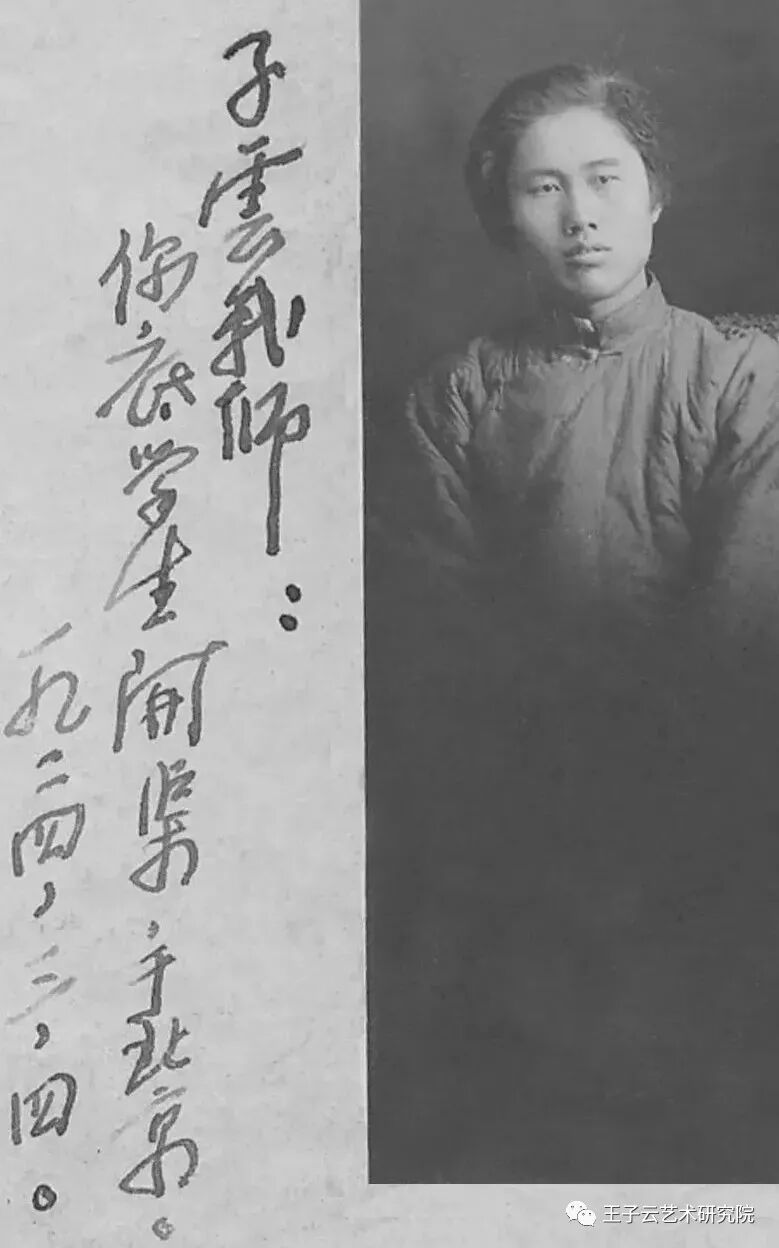 子雲我師：
你底学生開渠，于北京。
一九二四，三，四。
王子云艺术研究院